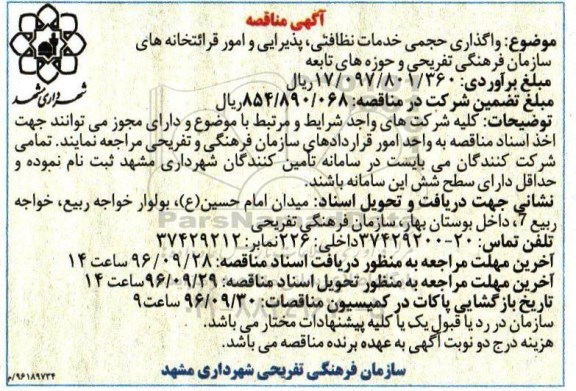 آگهی مناقصه
موضوع: واگذاری حجمی خدمات نظافتی، پذیرایی و امور قرائتخانه های
سازمان فرهنگی تفریحی و حوزه های تابعه
مبلغ برآوردی: ۱۷/۰۹۷/۸۰۱/۳۶۰ ریال
مبلغ تضمین شرکت در مناقصه: ۸۵۴/۸۹۰/۰۶۸ ریال
توضیحات: کلیه شرکت های واجد شرایط و مرتبط با موضوع و دارای مجوز می توانند جهت
اخذ اسناد مناقصه به واحد امور قراردادهای سازمان فرهنگی و تفریحی مراجعه نمایند. تمامی
شرکت کنندگان می بایست در سامانه تأمین کنندگان شهرداری مشهد ثبت نام نموده و
حداقل دارای سطح شش این سامانه باشند.
نشانی جهت دریافت و تحویل اسناد: میدان امام حسین(ع)، بولوار خواجه ربیع، خواجه
ربیع 7، داخل بوستان بهار، سازمان فرهنگی تفریحی
تلفن تماس: ۲۰-۳۷۴۲۹۲۰۰ داخلی: ۲۲۶ نمابر: ۳۷۴۲۹۲۱۲
آخرین مهلت مراجعه به منظور دریافت اسناد مناقصه: ۹۶/۰۹/۲۸ ساعت ۱۴
آخرین مهلت مراجعه به منظور تحویل اسناد مناقصه: ۹۶/۰۹/۲۹ ساعت ۱۴
تاریخ بازگشایی پاکات در کمیسیون مناقصات: ۹۶/۰۹/۳۰ ساعت ۹
سازمان در رد یا قبول یک یا کلیه پیشنهادات مختار می باشد.
هزینه درج دو نوبت آگهی به عهده برنده مناقصه می باشد.
سازمان فرهنگی تفریحی شهرداری مشهد
۹۶۱۸۹۷۳۴/م
شهرداری مشهد
ParsNamadData